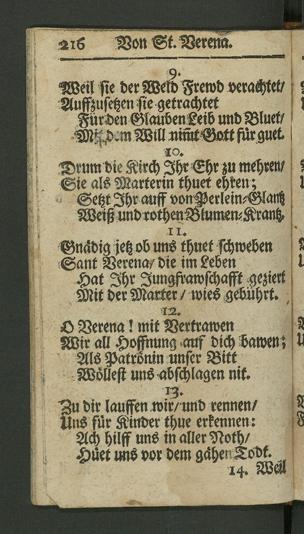 216 Von St. Verena.
9.
Weil sie der Weld Frewd verachtet/
Auffzusetzen sie getrachtet
Für den Glauben Leib und Bluet/
Mit dem Will nim̃t Gott für guet.
10.
Drum die Kirch Ihr Ehr zu mehren/
Sie als Marterin thuet ehren;
Setzt Ihr auff von Perlein-Glantz
Weiß und rothen Blumen-Krantz.
11.
Gnädig jetz ob uns thuet schweben
Sant Verena/ die im Leben
Hat Ihr Jungfrawschafft geziert
Mit der Marter/ wies gebührt.
12.
O Verena! mit Vertrawen
Wir all Hoffnung auf dich bawen;
Als Patrönin unser Bitt
Wöllest uns abschlagen nit.
13.
Zu dir lauffen wir/ und rennen/
Uns für Kinder thue erkennen:
Ach hilff uns in aller Noth/
Hüet uns vor dem gähen Todt.
14. Weil